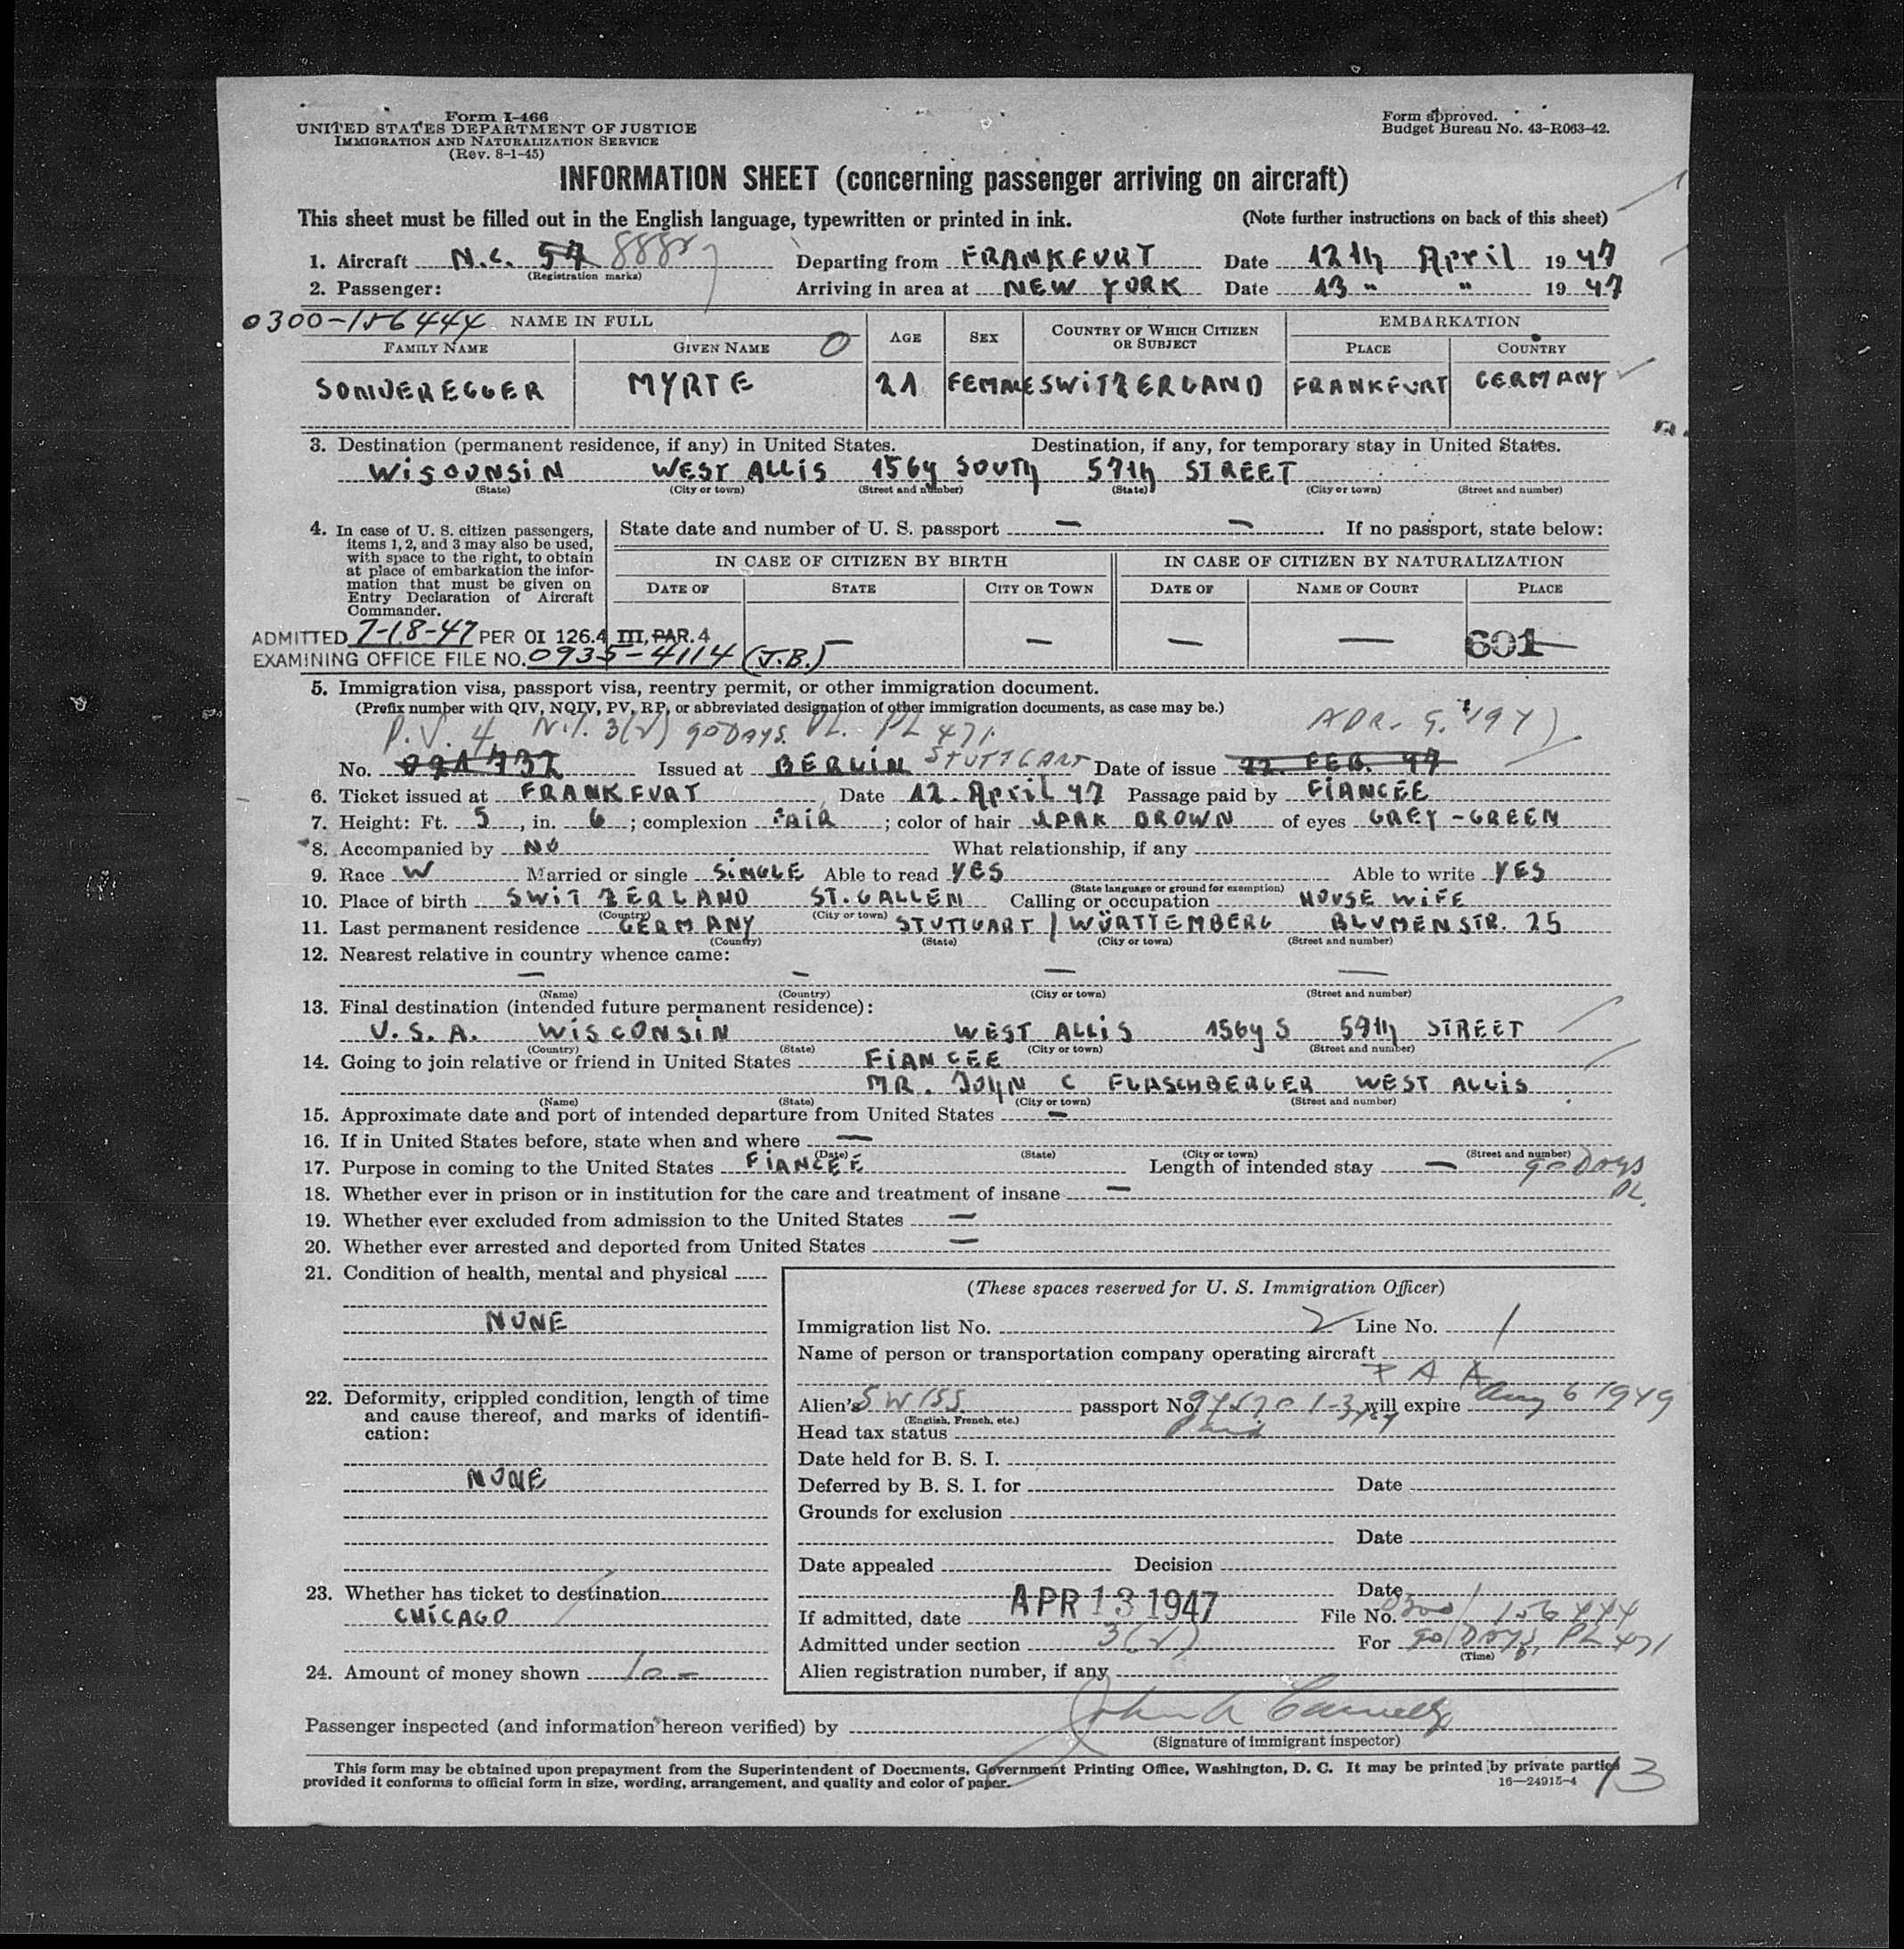 Form I-466
UNITED STATES DEPARTMENT OF JUSTICE
IMMIGRATION AND NATURALIZATION SERVICE
(Rev. 8-1-45)
Form approved.
Budget Bureau No. 43-R063-42.
INFORMATION SHEET (concerning passenger arriving on aircraft)
This sheet must be filled out in the English language, typewritten or printed in ink. (Note further instructions on back of this sheet)
1. Aircraft N.C. 88887 Departing from FRANKFURT Date 12th April 1947
(Registration marks)
2. Passenger: Arriving in area at NEW YORK Date 13 " " 1947
0300-156444 NAME IN FULL AGE SEX COUNTRY OF WHICH CITIZEN OR SUBJECT EMBARKATION
FAMILY NAME GIVEN NAME 0 PLACE COUNTRY
SONDEREGGER MYRTE 21 FEMALE SWITZERLAND FRANKFURT GERMANY
3. Destination (permanent residence, if any) in United States. Destination, if any, for temporary stay in United States.
WISCONSIN WEST ALLIS 1564 SOUTH 57th STREET
(State) (City or town) (Street and number) (State) (City or town) (Street and number)
4. In case of U. S. citizen passengers, items 1, 2, and 3 may also be used, with space to the right, to obtain at place of embarkation the information that must be given on Entry Declaration of Aircraft Commander.
State date and number of U. S. passport — — If no passport, state below:
IN CASE OF CITIZEN BY BIRTH IN CASE OF CITIZEN BY NATURALIZATION
DATE OF STATE CITY OR TOWN DATE OF NAME OF COURT PLACE
— — — — 601
ADMITTED 7-18-47 PER OI 126.4 III, PAR. 4
EXAMINING OFFICE FILE NO. 0935-4114 (J.B.)
5. Immigration visa, passport visa, reentry permit, or other immigration document.
(Prefix number with QIV, NQIV, PV, RP, or abbreviated designation of other immigration documents, as case may be.)
P.V. 4 N.I. 3(2) 90 Days. PL 471. APR. 9. 1947
No. 021732 Issued at BERLIN STUTTGART Date of issue 22. FEB. 47
6. Ticket issued at FRANKFURT Date 12. April 47 Passage paid by FIANCÉE
7. Height: Ft. 5, in. 6; complexion FAIR; color of hair DARK BROWN of eyes GREY-GREEN
8. Accompanied by NO What relationship, if any
9. Race W Married or single SINGLE Able to read YES Able to write YES
(State language or ground for exemption)
10. Place of birth SWITZERLAND ST. GALLEN Calling or occupation HOUSE WIFE
(Country) (City or town)
11. Last permanent residence GERMANY STUTTGART / WÜRTTEMBERG BLUMENSTR. 25
(Country) (State) (City or town) (Street and number)
12. Nearest relative in country whence came:
— — — —
(Name) (Country) (City or town) (Street and number)
13. Final destination (intended future permanent residence):
U.S.A. WISCONSIN WEST ALLIS 1564 S 57th STREET
(Country) (State) (City or town) (Street and number)
14. Going to join relative or friend in United States FIANCÉE
MR. JOHN C FLASCHBERGER WEST ALLIS
(Name) (State) (City or town) (Street and number)
15. Approximate date and port of intended departure from United States —
16. If in United States before, state when and where —
(Date) (State) (City or town) (Street and number)
17. Purpose in coming to the United States FIANCÉE Length of intended stay — 90 Days
18. Whether ever in prison or in institution for the care and treatment of insane — PL.
19. Whether ever excluded from admission to the United States —
20. Whether ever arrested and deported from United States —
21. Condition of health, mental and physical
NONE
22. Deformity, crippled condition, length of time and cause thereof, and marks of identification:
NONE
23. Whether has ticket to destination
CHICAGO
24. Amount of money shown 10 –
(These spaces reserved for U. S. Immigration Officer)
Immigration list No. 2 Line No. 1
Name of person or transportation company operating aircraft
P A A
Alien's SWISS passport No. will expire Aug 6 1949
(English, French, etc.)
Head tax status Paid
Date held for B. S. I.
Deferred by B. S. I. for Date
Grounds for exclusion
Date
Date appealed Decision
Date
If admitted, date APR 13 1947 File No. 0300/156444
Admitted under section 3(2) For 90 Days PL 471
(Time)
Alien registration number, if any
Passenger inspected (and information hereon verified) by
(Signature of immigrant inspector)
This form may be obtained upon prepayment from the Superintendent of Documents, Government Printing Office, Washington, D. C. It may be printed by private parties
provided it conforms to official form in size, wording, arrangement, and quality and color of paper. 16—24915-4 13